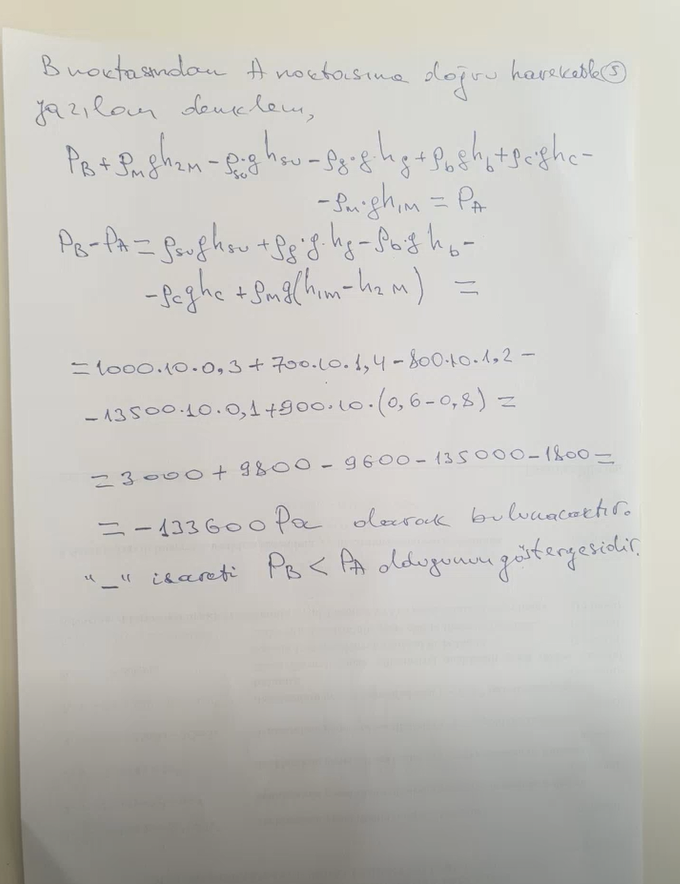 B noktasından A noktasına doğru hareketle (5)
yazılan denklem,
P_B + ρ_m g h_2M - ρ_su·g h_su - ρ_g·g·h_g + ρ_b g h_b + ρ_c·g h_c -
- ρ_m·g h_1M = P_A
P_B - P_A = ρ_su g h_su + ρ_g·g·h_g - ρ_b·g h_b -
- ρ_c g h_c + ρ_m g (h_1M - h_2M) =
= 1000.10.0,3 + 700.10.1,4 - 800.10.1,2 -
- 13500.10.0,1 + 900.10.(0,6 - 0,8) =
= 3000 + 9800 - 9600 - 135000 - 1800 =
= - 133600 Pa olarak bulunacaktır.
"_" isareti P_B < P_A oldugunun göstergesidir.